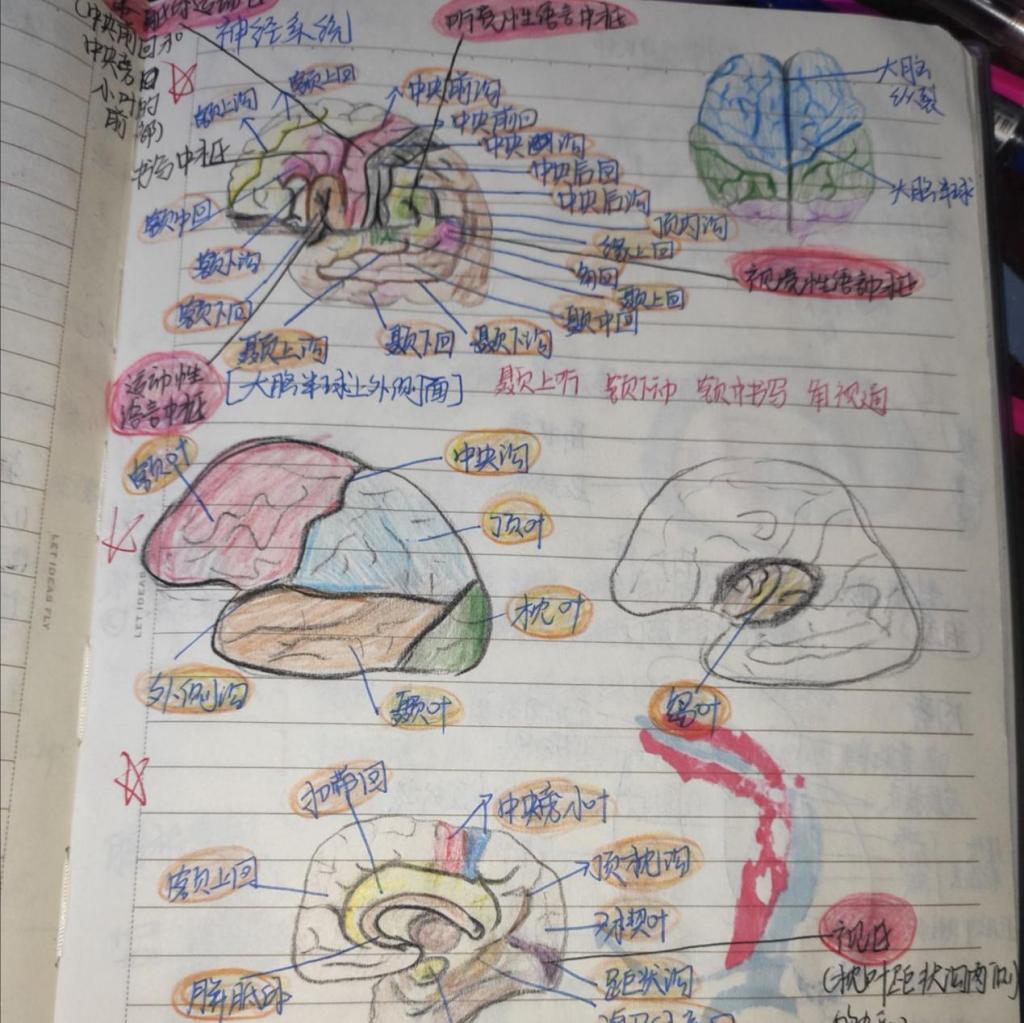 神经系统
听觉性语言中枢
(中央前回和
中央旁
小叶的
前部)
书写中枢
额上沟
额上回
中央前沟
中央前回
中央沟
中央后回
中央后沟
顶内沟
缘上回
角回
颞上回
颞中回
额中回
额下沟
额下回
颞上沟
颞下回
颞下沟
大脑
纵裂
大脑半球
视觉性语言中枢
运动性
语言中枢
[大脑半球上外侧面]
颞上听 额下动 额中书写 角视阅
额叶
中央沟
顶叶
枕叶
外侧沟
颞叶
岛叶
扣带回
中央旁小叶
额上回
顶枕沟
楔叶
距状沟
胼胝体
视区
(枕叶距状沟两侧
LET IDEAS FLY
LET IDEAS